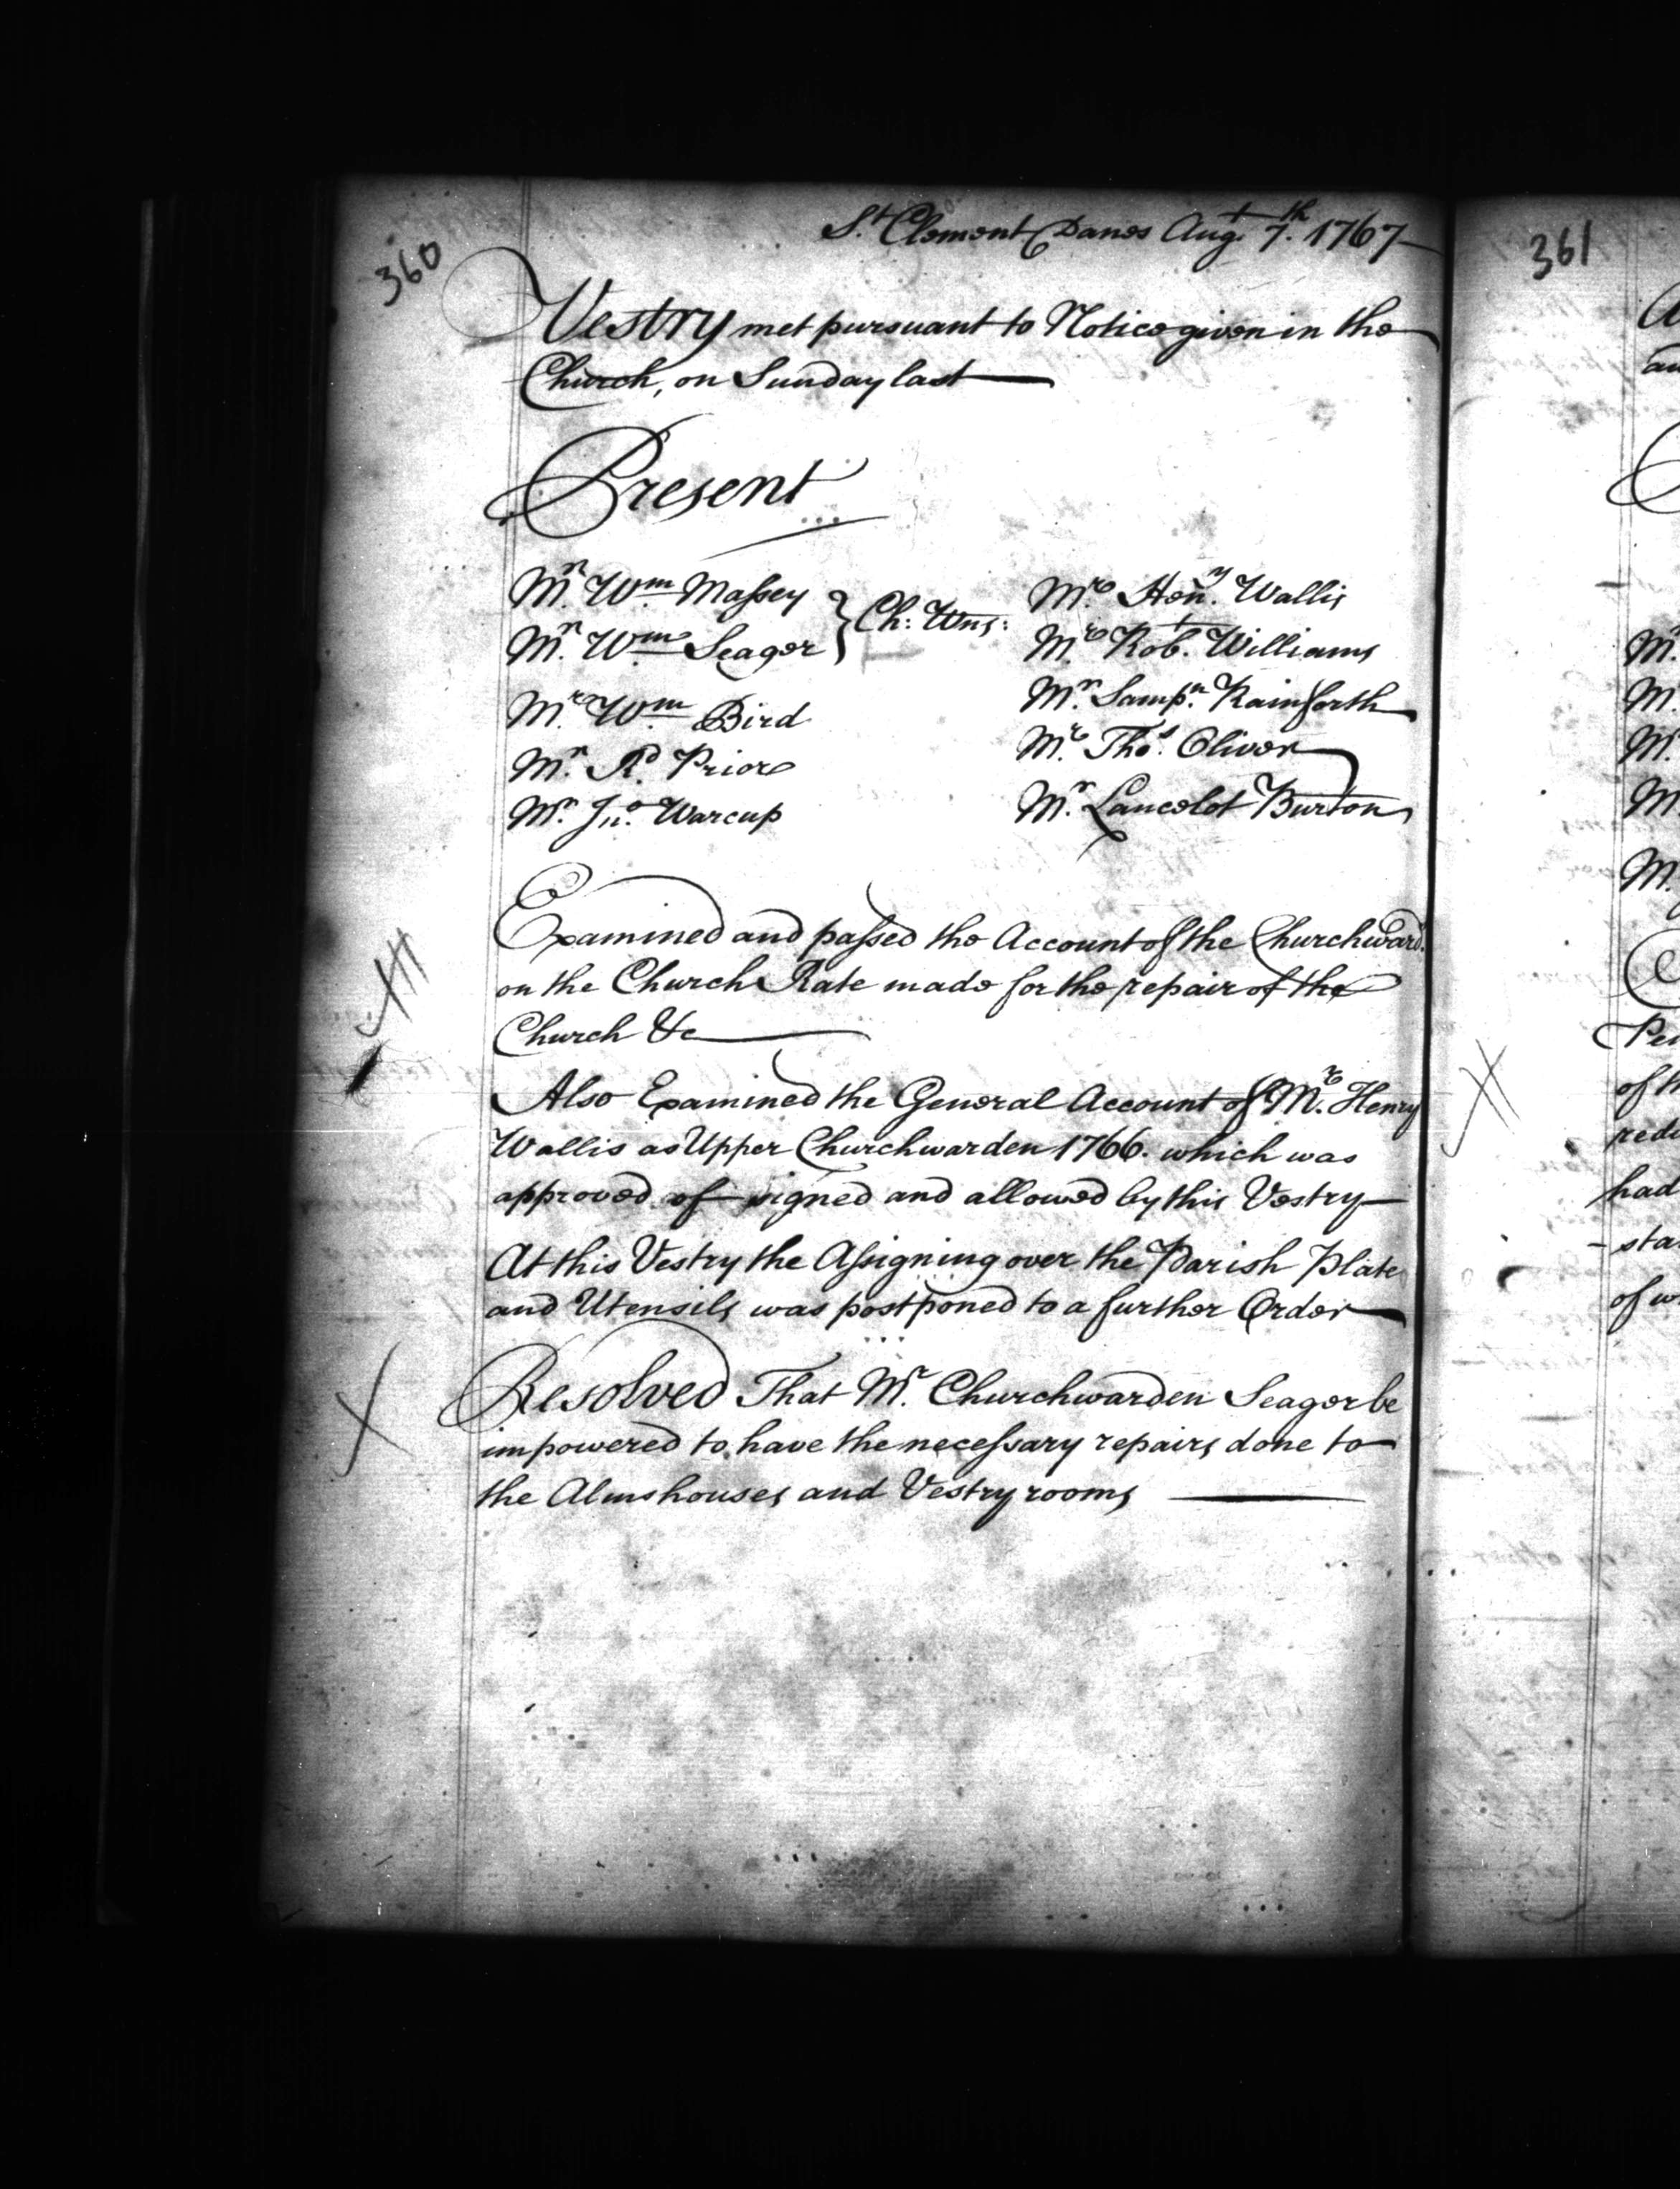 360
St. Clement Danes Augt. 7th. 1767
Vestry met pursuant to Notice given in the
Church, on Sunday last
Present
Mr. Wm. Massey } Ch: Wns:
Mr. Wm. Seager
Mr. Wm. Bird
Mr. Rd. Prior
Mr. Jno. Warcup
Mr. Heny. Wallis
Mr. Robt. Williams
Mr. Sampn. Rainforth
Mr. Thos. Oliver
Mr. Lancelot Burton
Examined and passed the Account of the Churchwards.
on the Church Rate made for the repair of the
Church &c
Also Examined the General Account of Mr. Henry
Wallis as Upper Churchwarden 1766. which was
approved of signed and allowed by this Vestry
At this Vestry the Assigning over the Parish Plate
and Utensils was postponed to a further Order
Resolved That Mr. Churchwarden Seager be
impowered to have the necessary repairs done to
the Almshouses and Vestry rooms
361
M.
M.
M.
M.
M.
of
had
of w